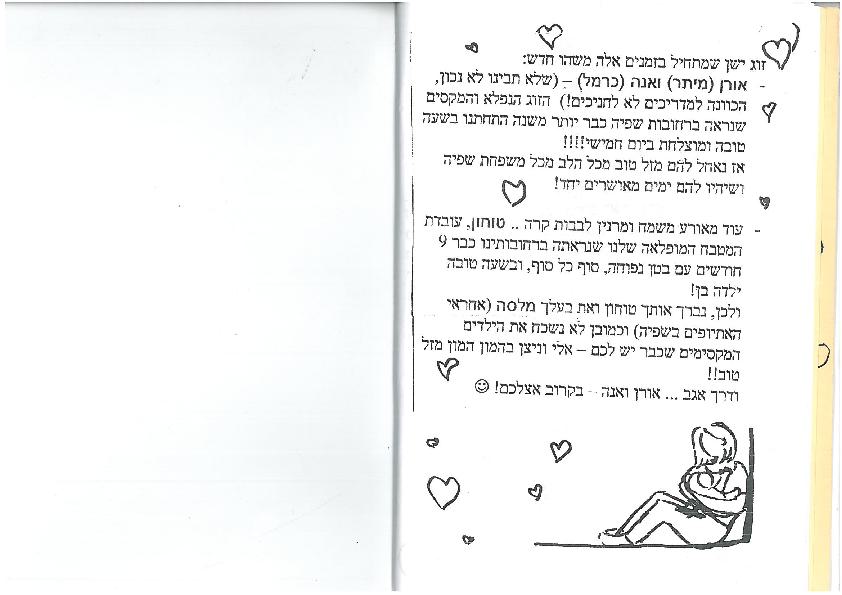 זוג ישן שמתחיל בזמנים אלה משהו חדש:
- אורן (מיתר) ואנה (כרמל) – (שלא תבינו לא נכון,
הכוונה למדריכים לא לחניכים!) הזוג הנפלא והמקסים
שנראה ברחובות שפיה כבר יותר משנה התחתנו בשעה
טובה ומוצלחת ביום חמישי!!!!
אז נאחל להם מזל טוב מכל הלב מכל משפחת שפיה
ושיהיו להם ימים מאושרים יחד!
- עוד מאורע משמח ומרנין לבבות קרה .. טוחון, עובדת
המטבח המופלאה שלנו שנראתה ברחובותינו כבר 9
חודשים עם בטן נפוחה, סוף כל סוף, ובשעה טובה
ילדה בן!
ולכן, נברך אותך טוחון ואת בעלך מלסה (אחראי
האתיופים בשפיה) וכמובן לא נשכח את הילדים
המקסימים שכבר יש לכם – אלי וניצן בהמון המון מזל
טוב!!
ודרך אגב ... אורן ואנה – בקרוב אצלכם! ☺